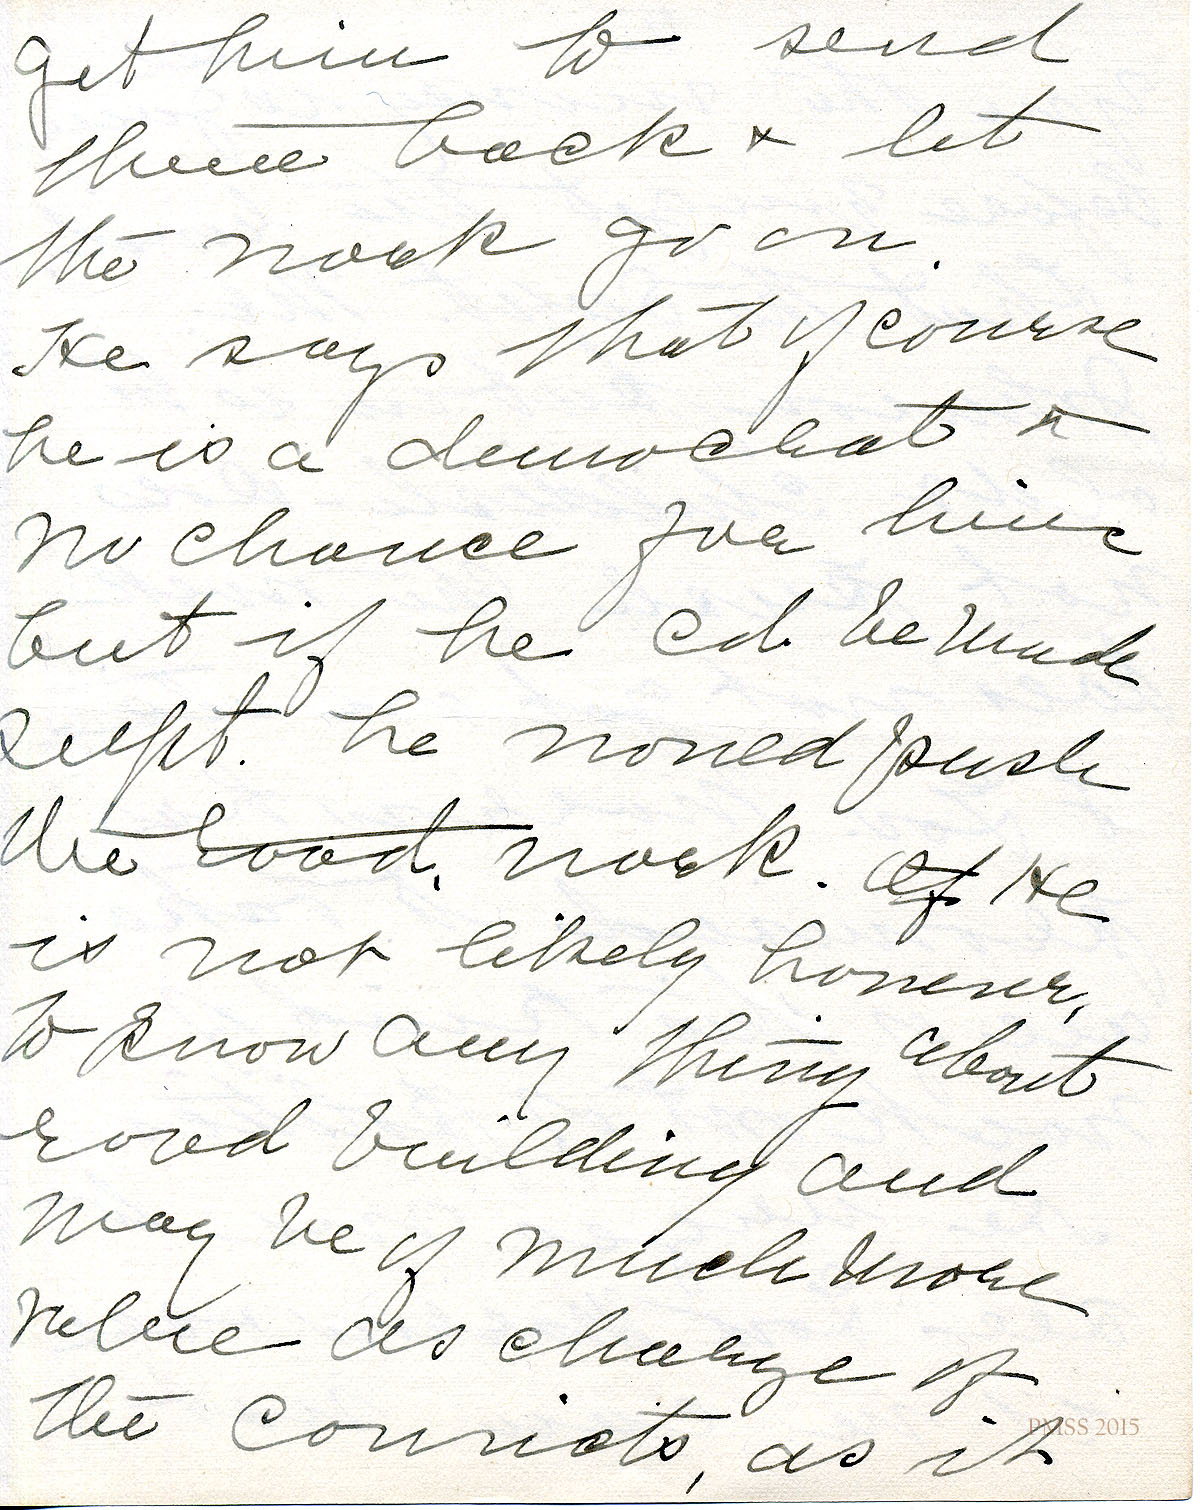 get him to send
them back & let
the work go on.
He says that of course
he is a democrat &
no chance for him
but if he cd. be made
Supt. he would push
the road, work. He
is not likely however,
to know any thing about
road building and
may be of much more
value as charge of
the convicts, as it
PMSS 2015